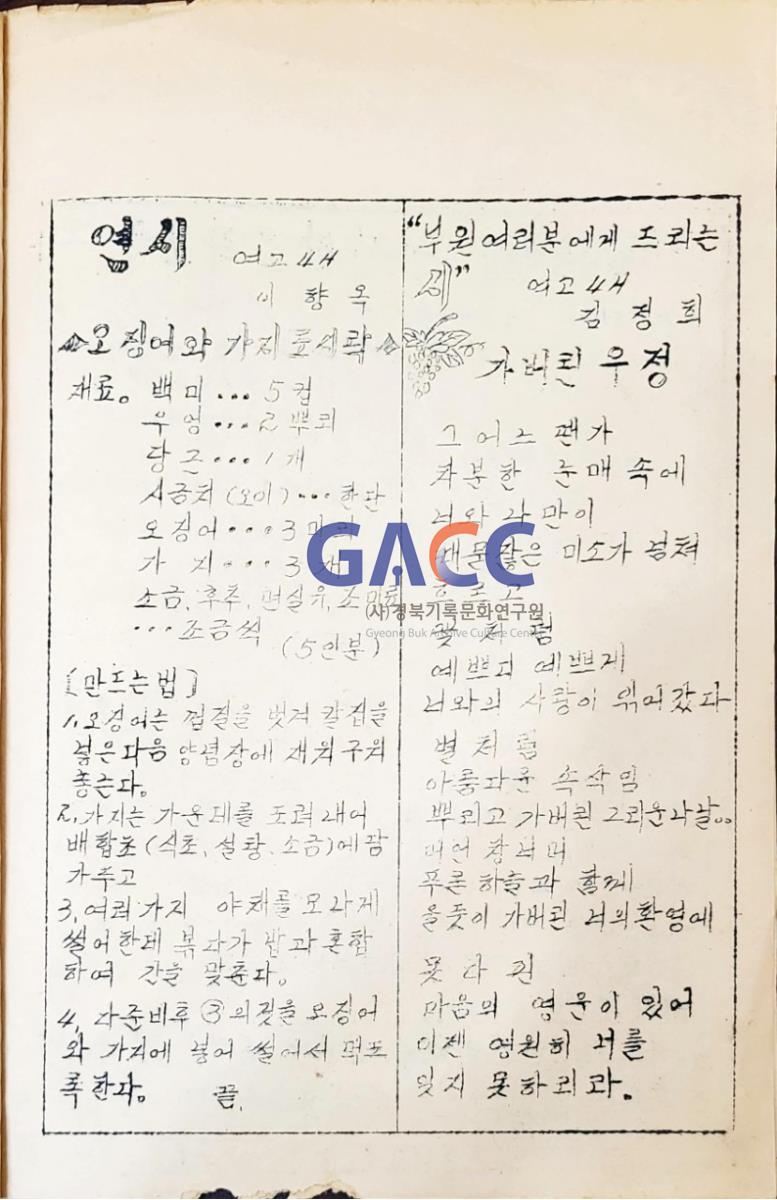 연시
여고4H
이 향 옥
오징어와 가지
재료。 백 미 ••• 5컵
우엉 ••• 2뿌리
당근 ••• 1개
시금치 (오이) ••• 한단
오징어 ••• 3마리
가 지 ••• 3개
소금, 후추, 면실유, 조미료
••• 조금씩 (5인분)
[만드는법]
1, 오징어는 껍질을 벗겨 칼집을
넣은다음 양념장에 재워 구워
놓는다。
2, 가지는 가운데를 도려내어
배합초 (식초, 설탕, 소금)에 담
가두고
3, 여러가지 야채를 모나게
썰어한데 볶다가 밥과 혼합
하여 간을 맞춘다。
4, 다준비후 ③의것을 오징어
와 가지에 넣어 썰어서 먹도
록한다。 끝.
“부원여러분에게 드리는
시”
여고4H
김 정 희
가버린 우정
그어느 땐가
차분한 눈매 속에
너와 나만이
미소가 넘쳐
흐르고
꽃처럼
예쁘디 예쁘게
너와의 사랑이 엮어갔다
별처럼
아름다운 속삭임
뿌리고 가버린 그리운나날。。
푸른하늘과 함께
웃듯이 가버린 너의환영에
못다한
마음의 여운이 있어
이젠 영원히 너를
잊지 못하리라。
GACC
(사)경북기록문화연구원
Gyeong Buk Archive Culture Center